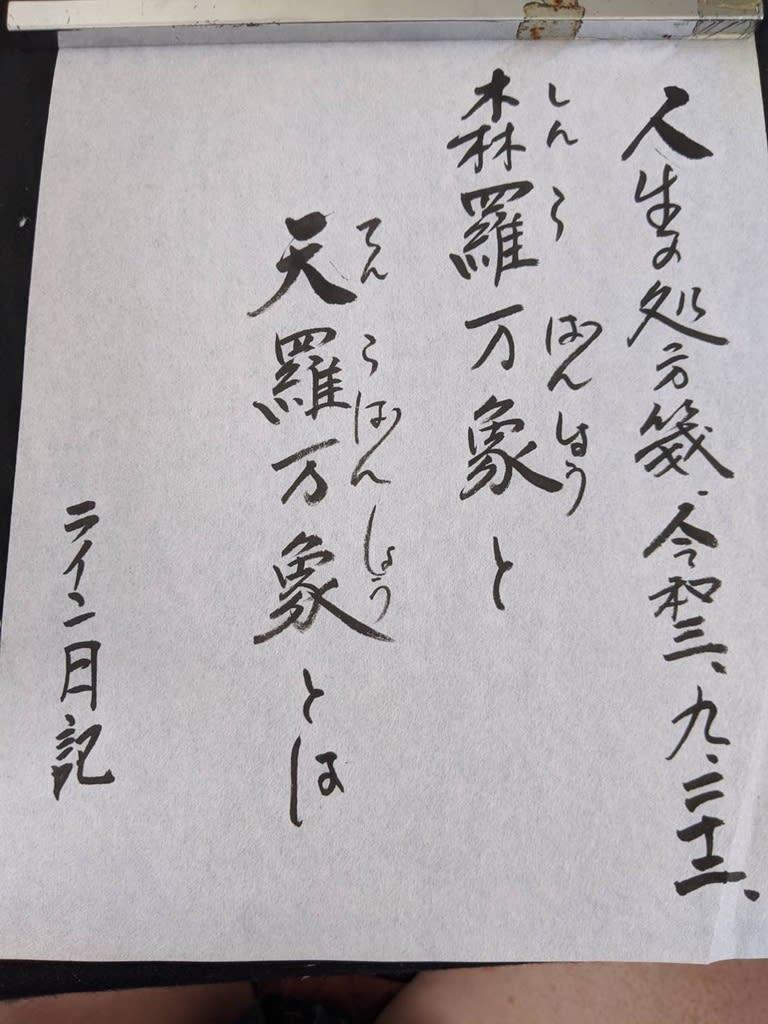 人生の処方箋、令和三、九、二十二、
しんらばんしょう
森羅万象と
てんらばんしょう
天羅万象とは
ライン日記